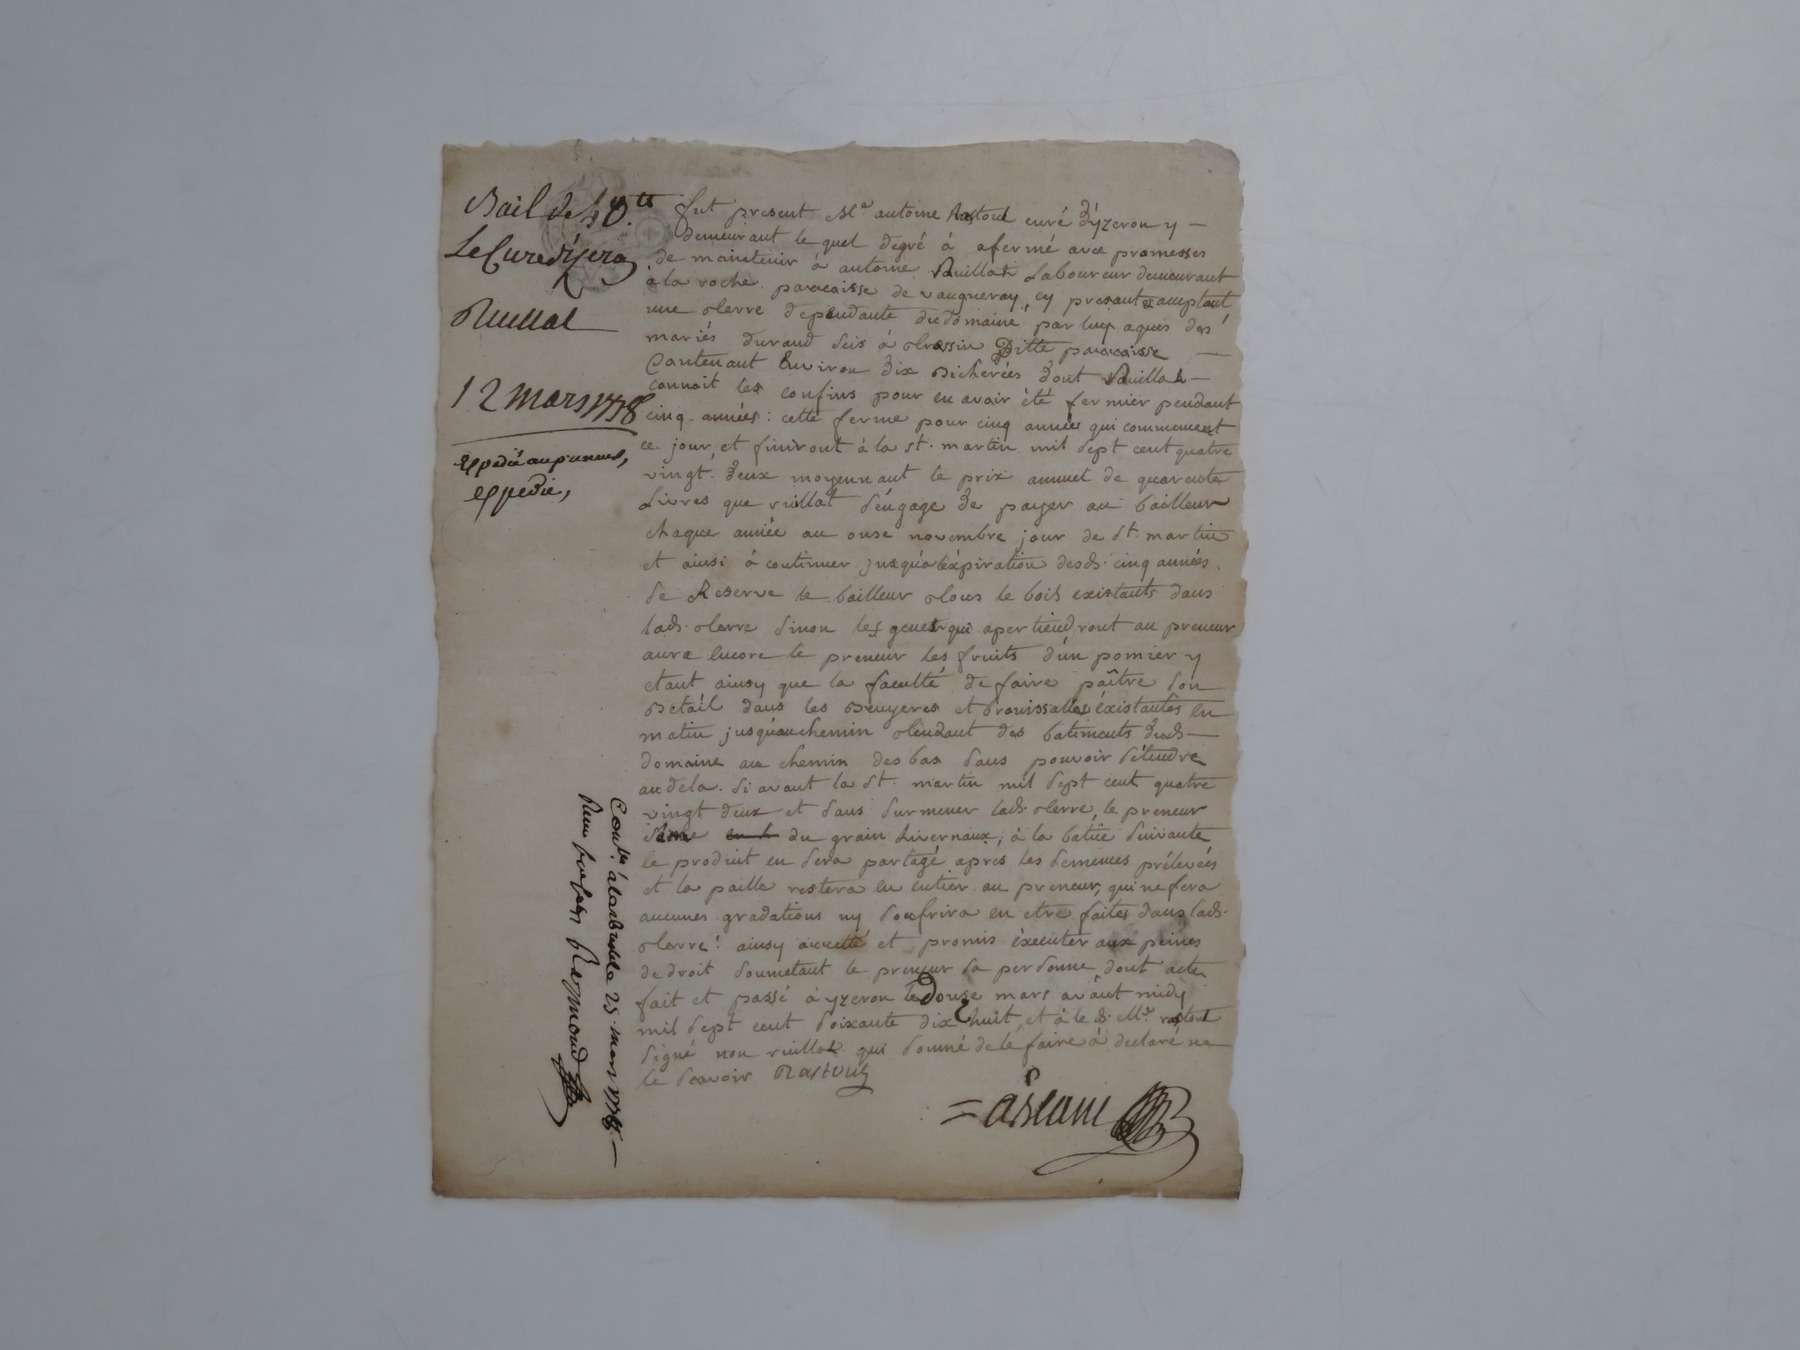 Bail de 40.tt
Le Curé d'izeron
Ruillat
12 mars 1778
expedié au preneur,
expedié,
fut present Me antoine Rastoul curé d'yzeron y —
demeurant le quel degré à afermé avec promesses
de maintenir à antoine Ruillat Laboureur demeurant
à la roche paroisse de vaugneray, cy present & acceptant
une terre dependante du domaine par luy aquis des
mariés durand sis à
Contenant Environ dix Bicherées dont Ruillat —
connoit les confins pour en avoir été fermier pendant
cinq années : cette ferme pour cinq années qui commencent
ce jour, et finiront à la st. martin mil sept cent quatre
vingt. deux moyennant le prix annuel de quarente
Livres que ruillat s'engage de payer au bailleur
chaque année au onse novembre jour de st. martin
et ainsi à continuer jusqu'à l'éxpiration desds. cinq années.
Se Reserve le bailleur tous le bois existants dans
lads. terre sinon les genest qui apertiendront au preneur
aura Encore le preneur les fruits d'un pomier y
etant ainsy que la faculté de faire paître son
Betail dans les Bruyeres et brouissalles éxistantes en
matin jusqu'au chemin tendant des batiments duds —
domaine au chemin des bas sans pouvoir s'étendre
au dela. Si avant la st. martin mil sept cent quatre
vingt deux et sans surmener lads. terre, le preneur
séme du grain hivernaux, à la batüe suivante
le produit en sera partagé apres les semences prélevées
et la paille restera en entier au preneur, qui ne fera
aucunes gradations ny soufrira en etre faites dans lads.
terre : ainsy accepté et promis éxecuter aux peines
de droit soumetant le preneur sa personne, dont acte
fait et passé à yzeron le Douze mars avant midy
mil sept cent soixante dix huit, et à le ds. Me. rastoul
signé non ruillat qui sommé de le faire à declaré ne
le scavoir Rastoul
Conlé. à larbresle 25. mars 1778. —
Reymond